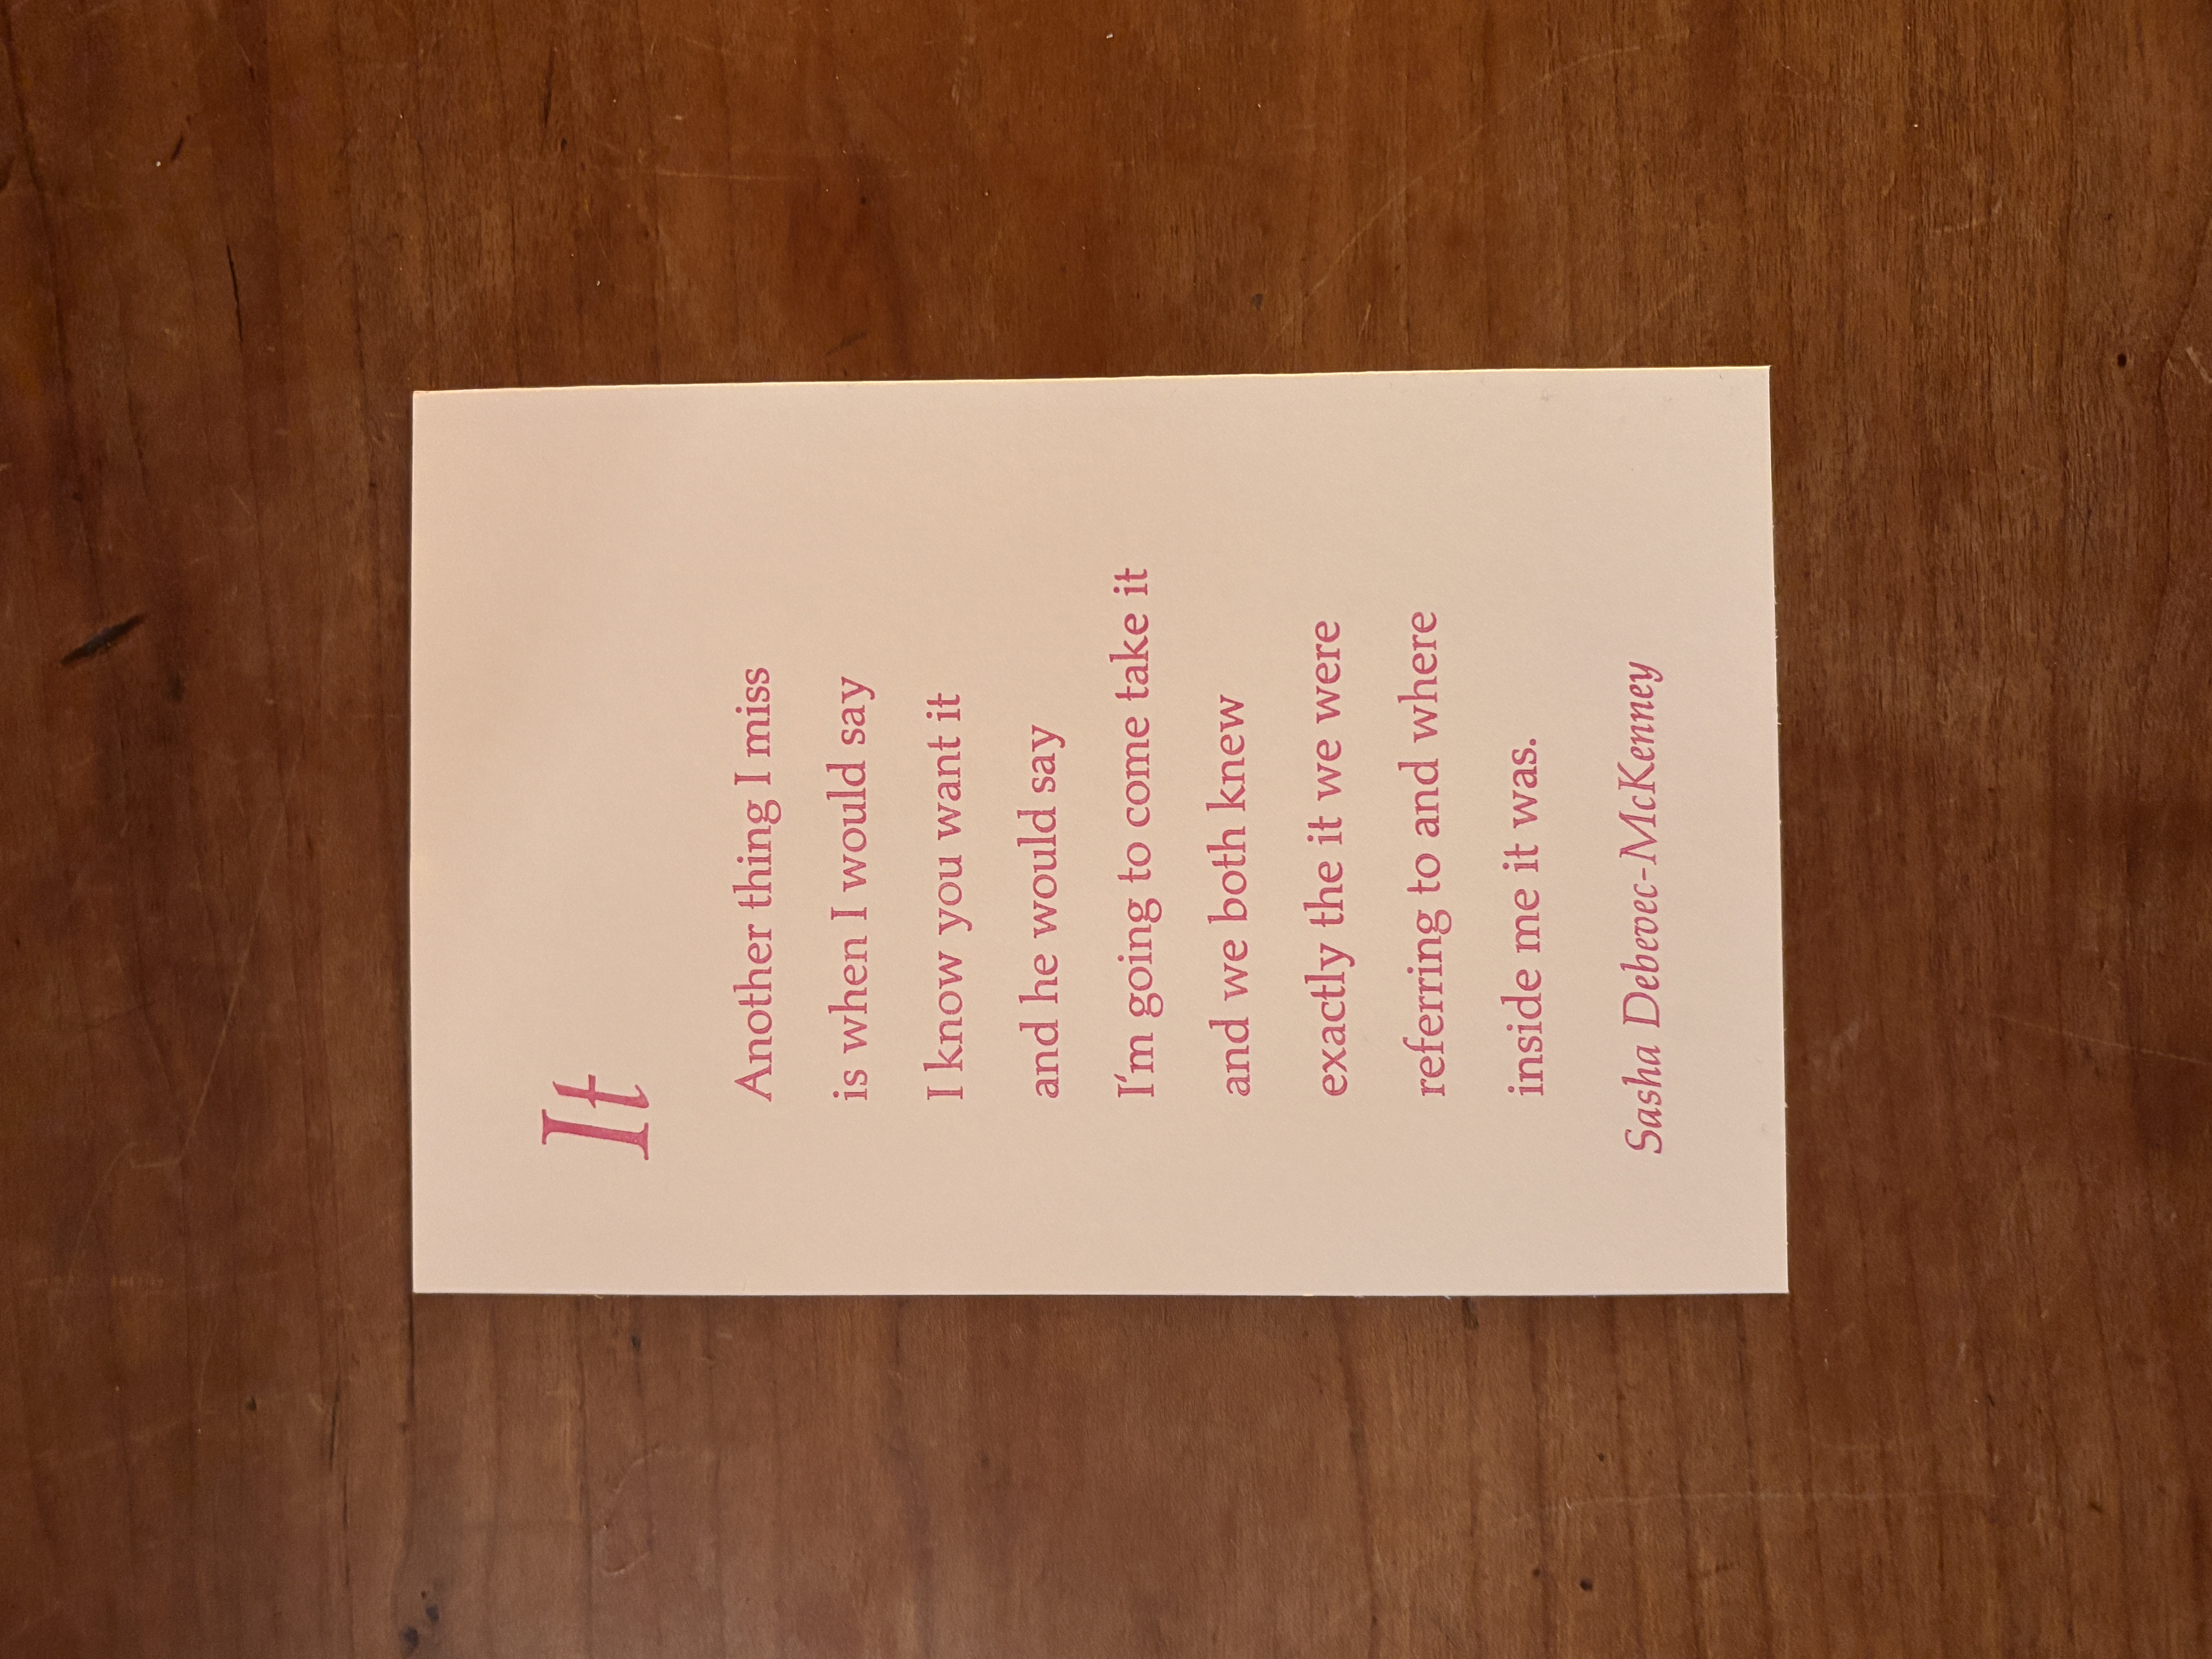 It
Another thing I miss
is when I would say
I know you want it
and he would say
I'm going to come take it
and we both knew
exactly the it we were
referring to and where
inside me it was.
Sasha Debevec-McKenney